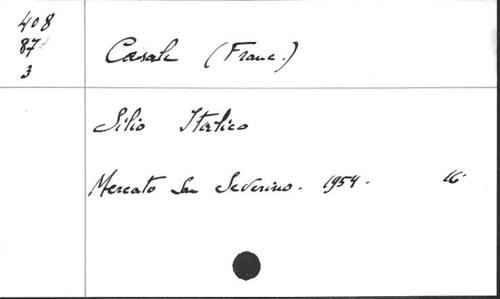 408
87
3
Casale (Franc.)
Silio Italico
Mercato San Severino. 1954. 16°